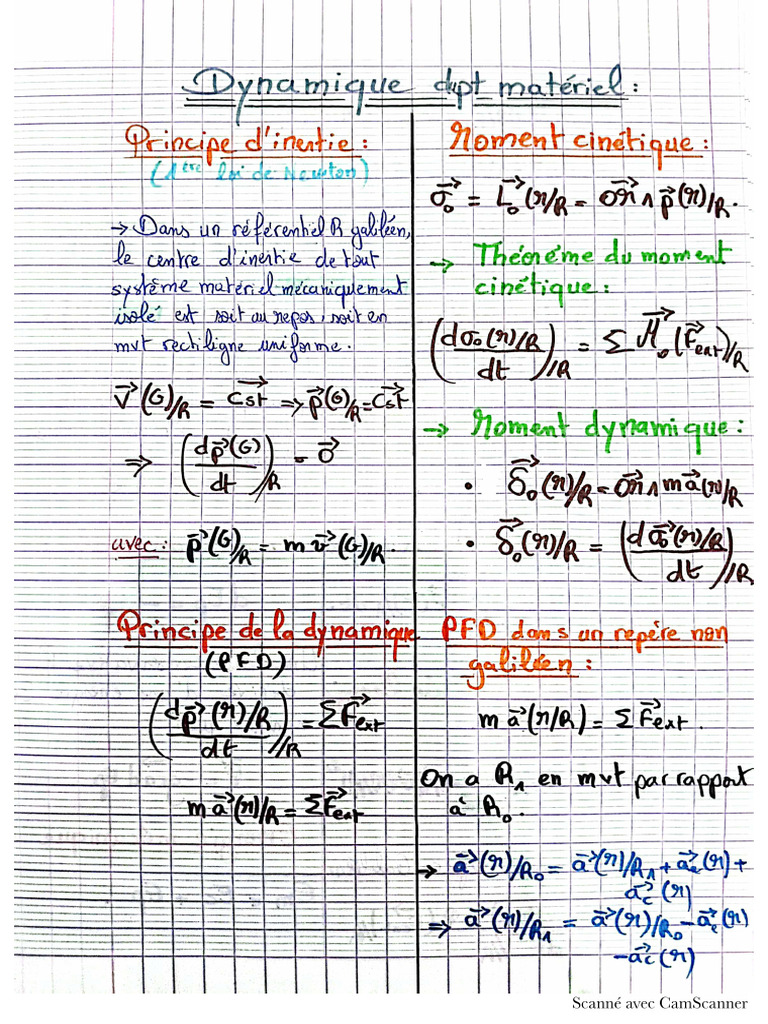 Dynamique du pt matériel :
Principe d'inertie :
(1ère loi de Newton)
→ Dans un référentiel R galiléen,
le centre d'inertie de tout
système matériel mécaniquement
isolé est soit au repos, soit en
mvt rectiligne uniforme.
V⃗(G)/R = Cst⃗ ⇒ p⃗(G)/R = Cst⃗
⇒ (dp⃗(G)/dt)/R = 0⃗
avec : p⃗(G)/R = m v⃗(G)/R.
Principe de la dynamique
(PFD)
(dp⃗(M)/R/dt)/R = ΣF⃗ext
m a⃗(M)/R = ΣF⃗ext
Moment cinétique :
σ⃗o = L⃗o(M/R = OM⃗ ∧ p⃗(M)/R.
→ Théorème du moment
cinétique :
(dσo(M)/R/dt)/R = Σ M⃗o(F⃗ext)/R
→ Moment dynamique :
• δ⃗o(M)/R = OM⃗ ∧ m a⃗(M)/R
• δ⃗o(M)/R = (dσ⃗o(M)/R/dt)/R
PFD dans un repère non
galiléen :
m a⃗(M/R) = ΣF⃗ext.
On a R1 en mvt par rapport
à R0.
→ a⃗(M)/R0 = a⃗(M)/R1 + a⃗e(M) +
a⃗c(M)
⇒ a⃗(M)/R1 = a⃗(M)/R0 - a⃗e(M)
- a⃗c(M)
Scanné avec CamScanner